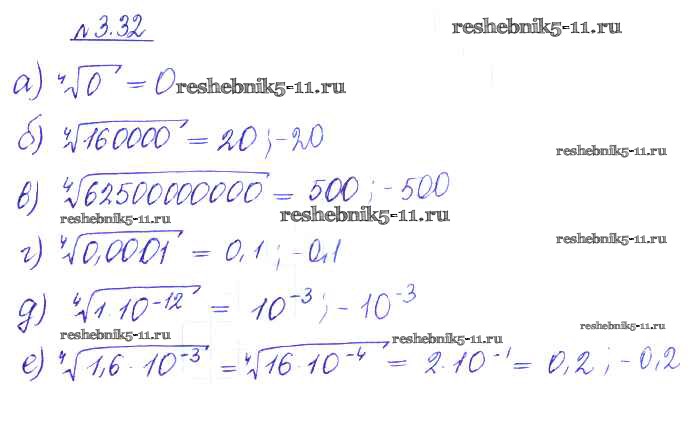 №3.32
reshebnik5-11.ru
а) ⁴√0 = 0
reshebnik5-11.ru
б) ⁴√160000 = 20; -20
reshebnik5-11.ru
в) ⁴√62500000000 = 500; -500
reshebnik5-11.ru
reshebnik5-11.ru
г) ⁴√0,0001 = 0,1; -0,1
reshebnik5-11.ru
д) ⁴√1·10⁻¹² = 10⁻³; -10⁻³
reshebnik5-11.ru
reshebnik5-11.ru
reshebnik5-11.ru
е) ⁴√1,6·10⁻³ = ⁴√16·10⁻⁴ = 2·10⁻¹ = 0,2; -0,2